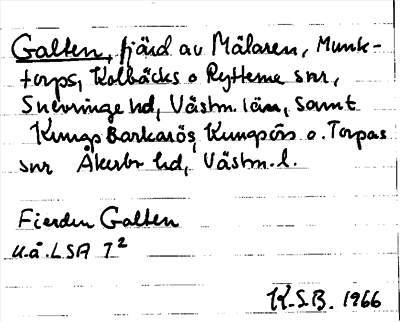 Galten, fjärd av Mälaren, Munk-
torps, Kolbäcks o Rytterne snr,
Snevringe hd, Västm. län, samt
Kungs Barkarös, Kungsörs o. Torpas
snr Åkerbo hd, Västm. l.
Fierden Galten
u.å. LSA T²
K.S.B. 1966